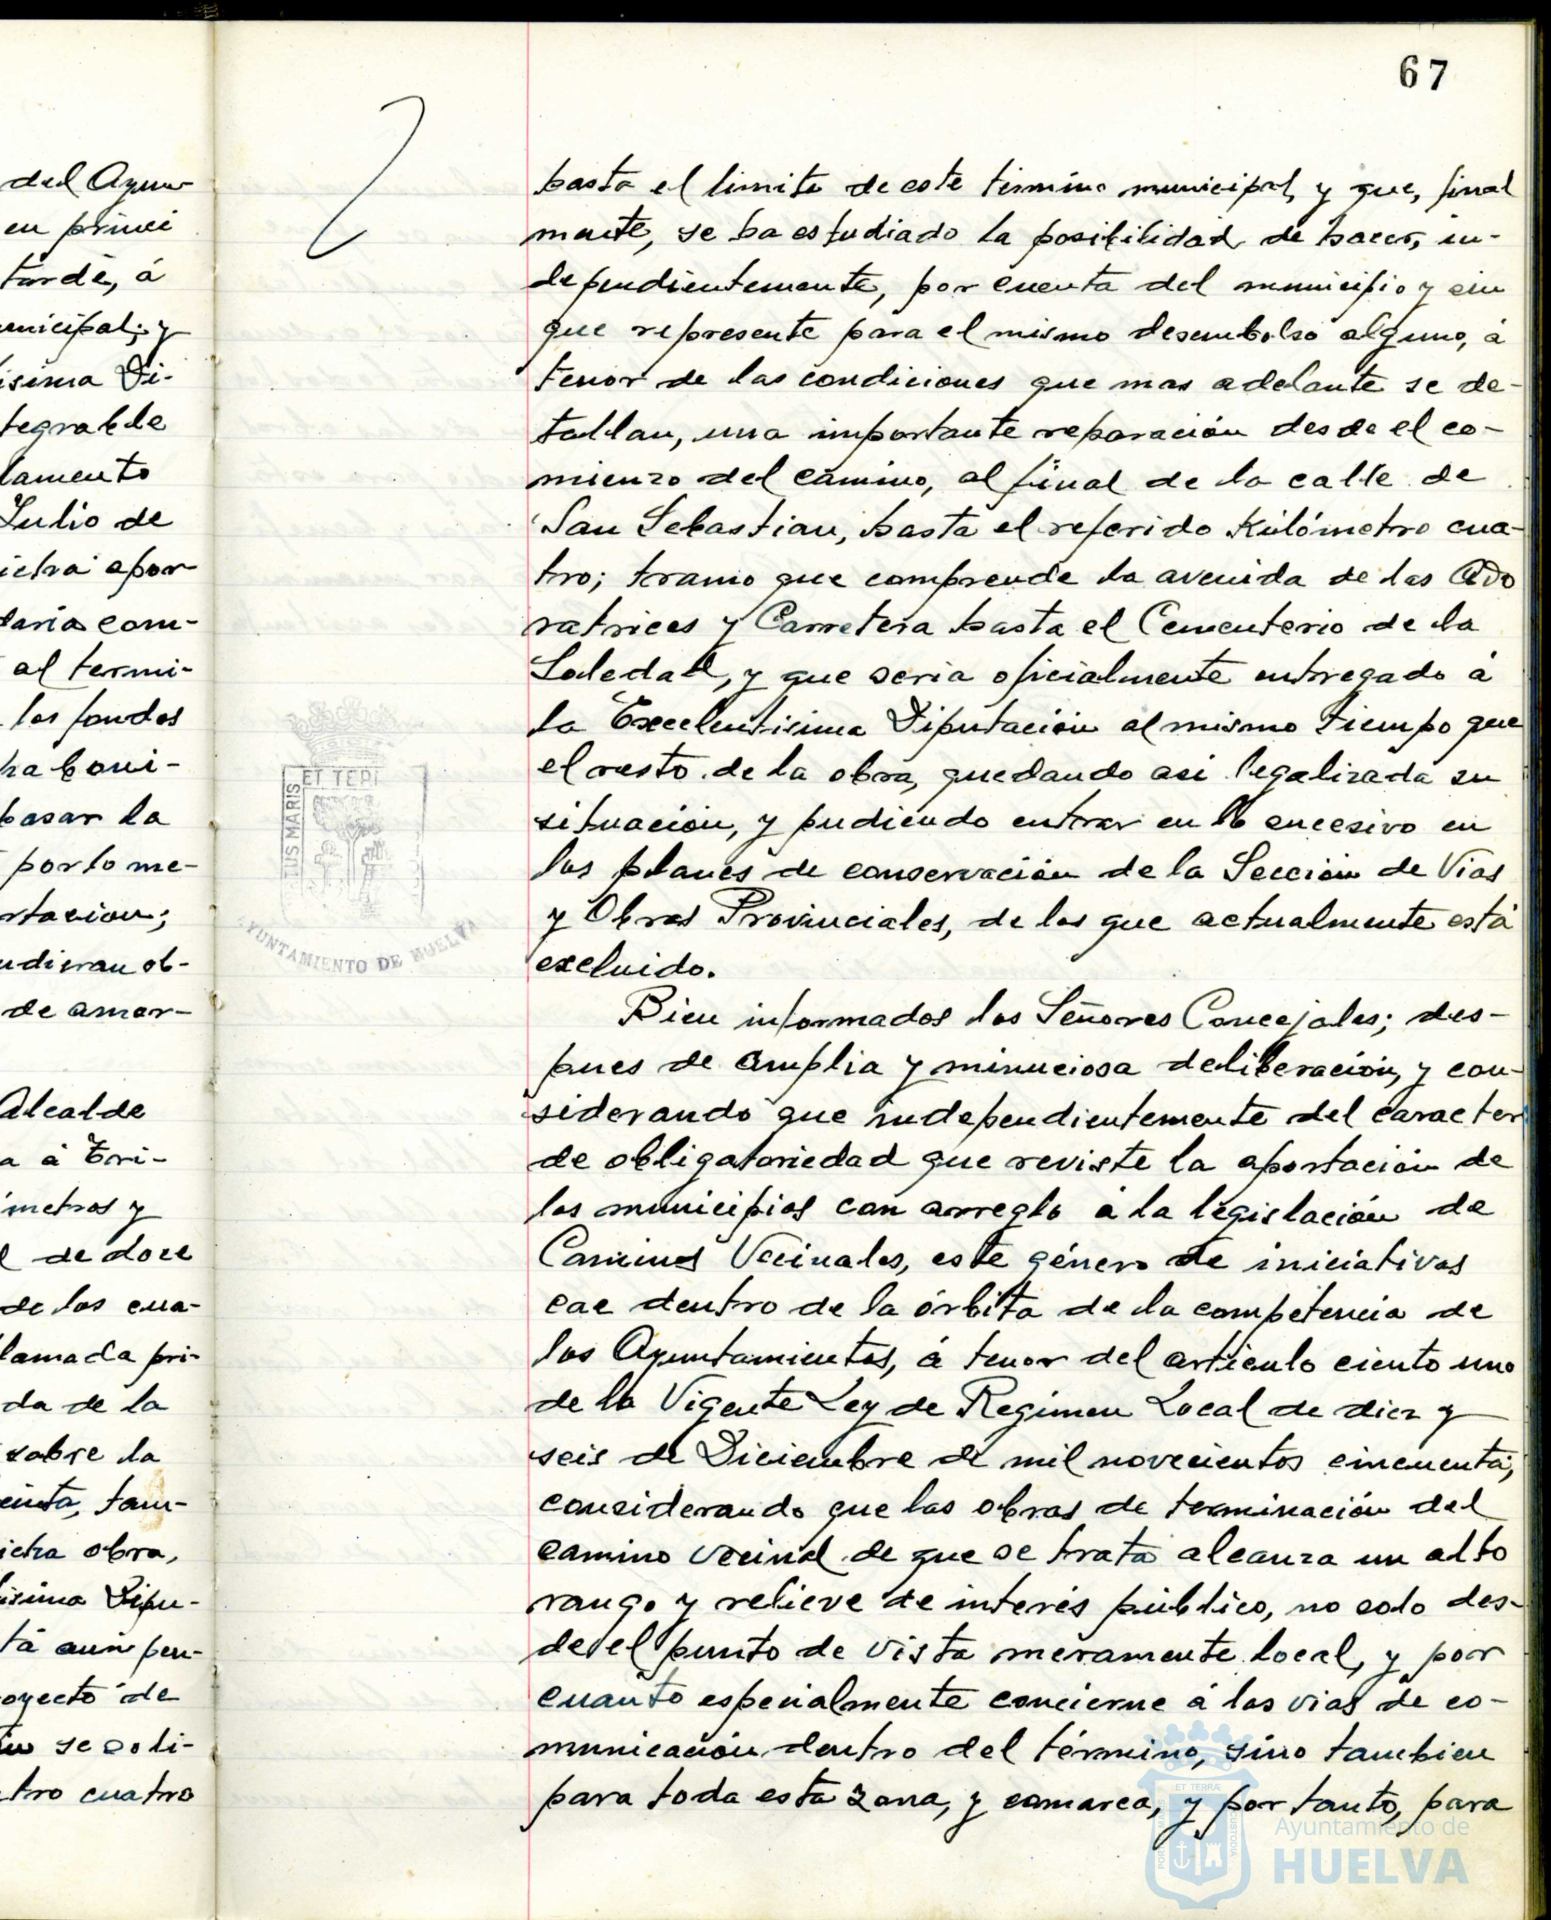 67
del Ayun-
en princi
tarde, á
unicipal; y
ísima Di-
tegrable
lamento
Julio de
icha apor
daría com-
al termi-
los fondos
ha boni-
basar la
por lo me-
rtacion;
udieran ob-
de amor-
Alcalde
a á Tri-
ímetros y
l de doce
de los cua-
llamada pri-
da de la
sobre la
cinta, tam-
icha obra,
lisima Dipu-
tá aun pen-
oyecto de
se soli-
tro cuatro
hasta el limite de este término municipal, y que, final
mente, se ha estudiado la posibilidad de hacer, in-
dependientemente, por cuenta del municipio y sin
que represente para el mismo desembolso alguno, á
tenor de las condiciones que mas adelante se de-
tallan, una importante reparación desde el co-
mienzo del camino, al final de la calle de
San Sebastian, hasta el referido Kilómetro cua-
tro; tramo que comprende la avenida de las Ado
ratrices y Carretera hasta el Cementerio de la
Soledad, y que seria oficialmente entregado á
la Excelentisima Diputación al mismo tiempo que
el resto de la obra, quedando asi legalizada su
situación, y pudiendo entrar en lo sucesivo en
los planes de conservación de la Sección de Vias
y Obras Provinciales, de los que actualmente está
excluido.
Bien informados los Señores Concejales; des-
pues de amplia y minuciosa deliberación, y con-
siderando que independientemente del caracter
de obligatoriedad que reviste la aportación de
los municipios con arreglo á la legislación de
Caminos Vecinales, este género de iniciativas
cae dentro de la órbita de la competencia de
los Ayuntamientos, á tenor del artículo ciento uno
de la Vigente Ley de Regimen Local de diez y
seis de Diciembre de mil novecientos cincuenta;
considerando que las obras de terminación del
camino vecinal de que se trata alcanza un alto
rango y relieve de interés público, no solo des-
de el punto de vista meramente local, y por
cuanto especialmente concierne á las vias de co-
municación dentro del término, sino tambien
para toda esta zona, y comarca, y por tanto, para
ET TERR
TUS MARIS
AYUNTAMIENTO DE HUELVA
ET TERRÆ
CUSTODIA
Ayuntamiento de
HUELVA